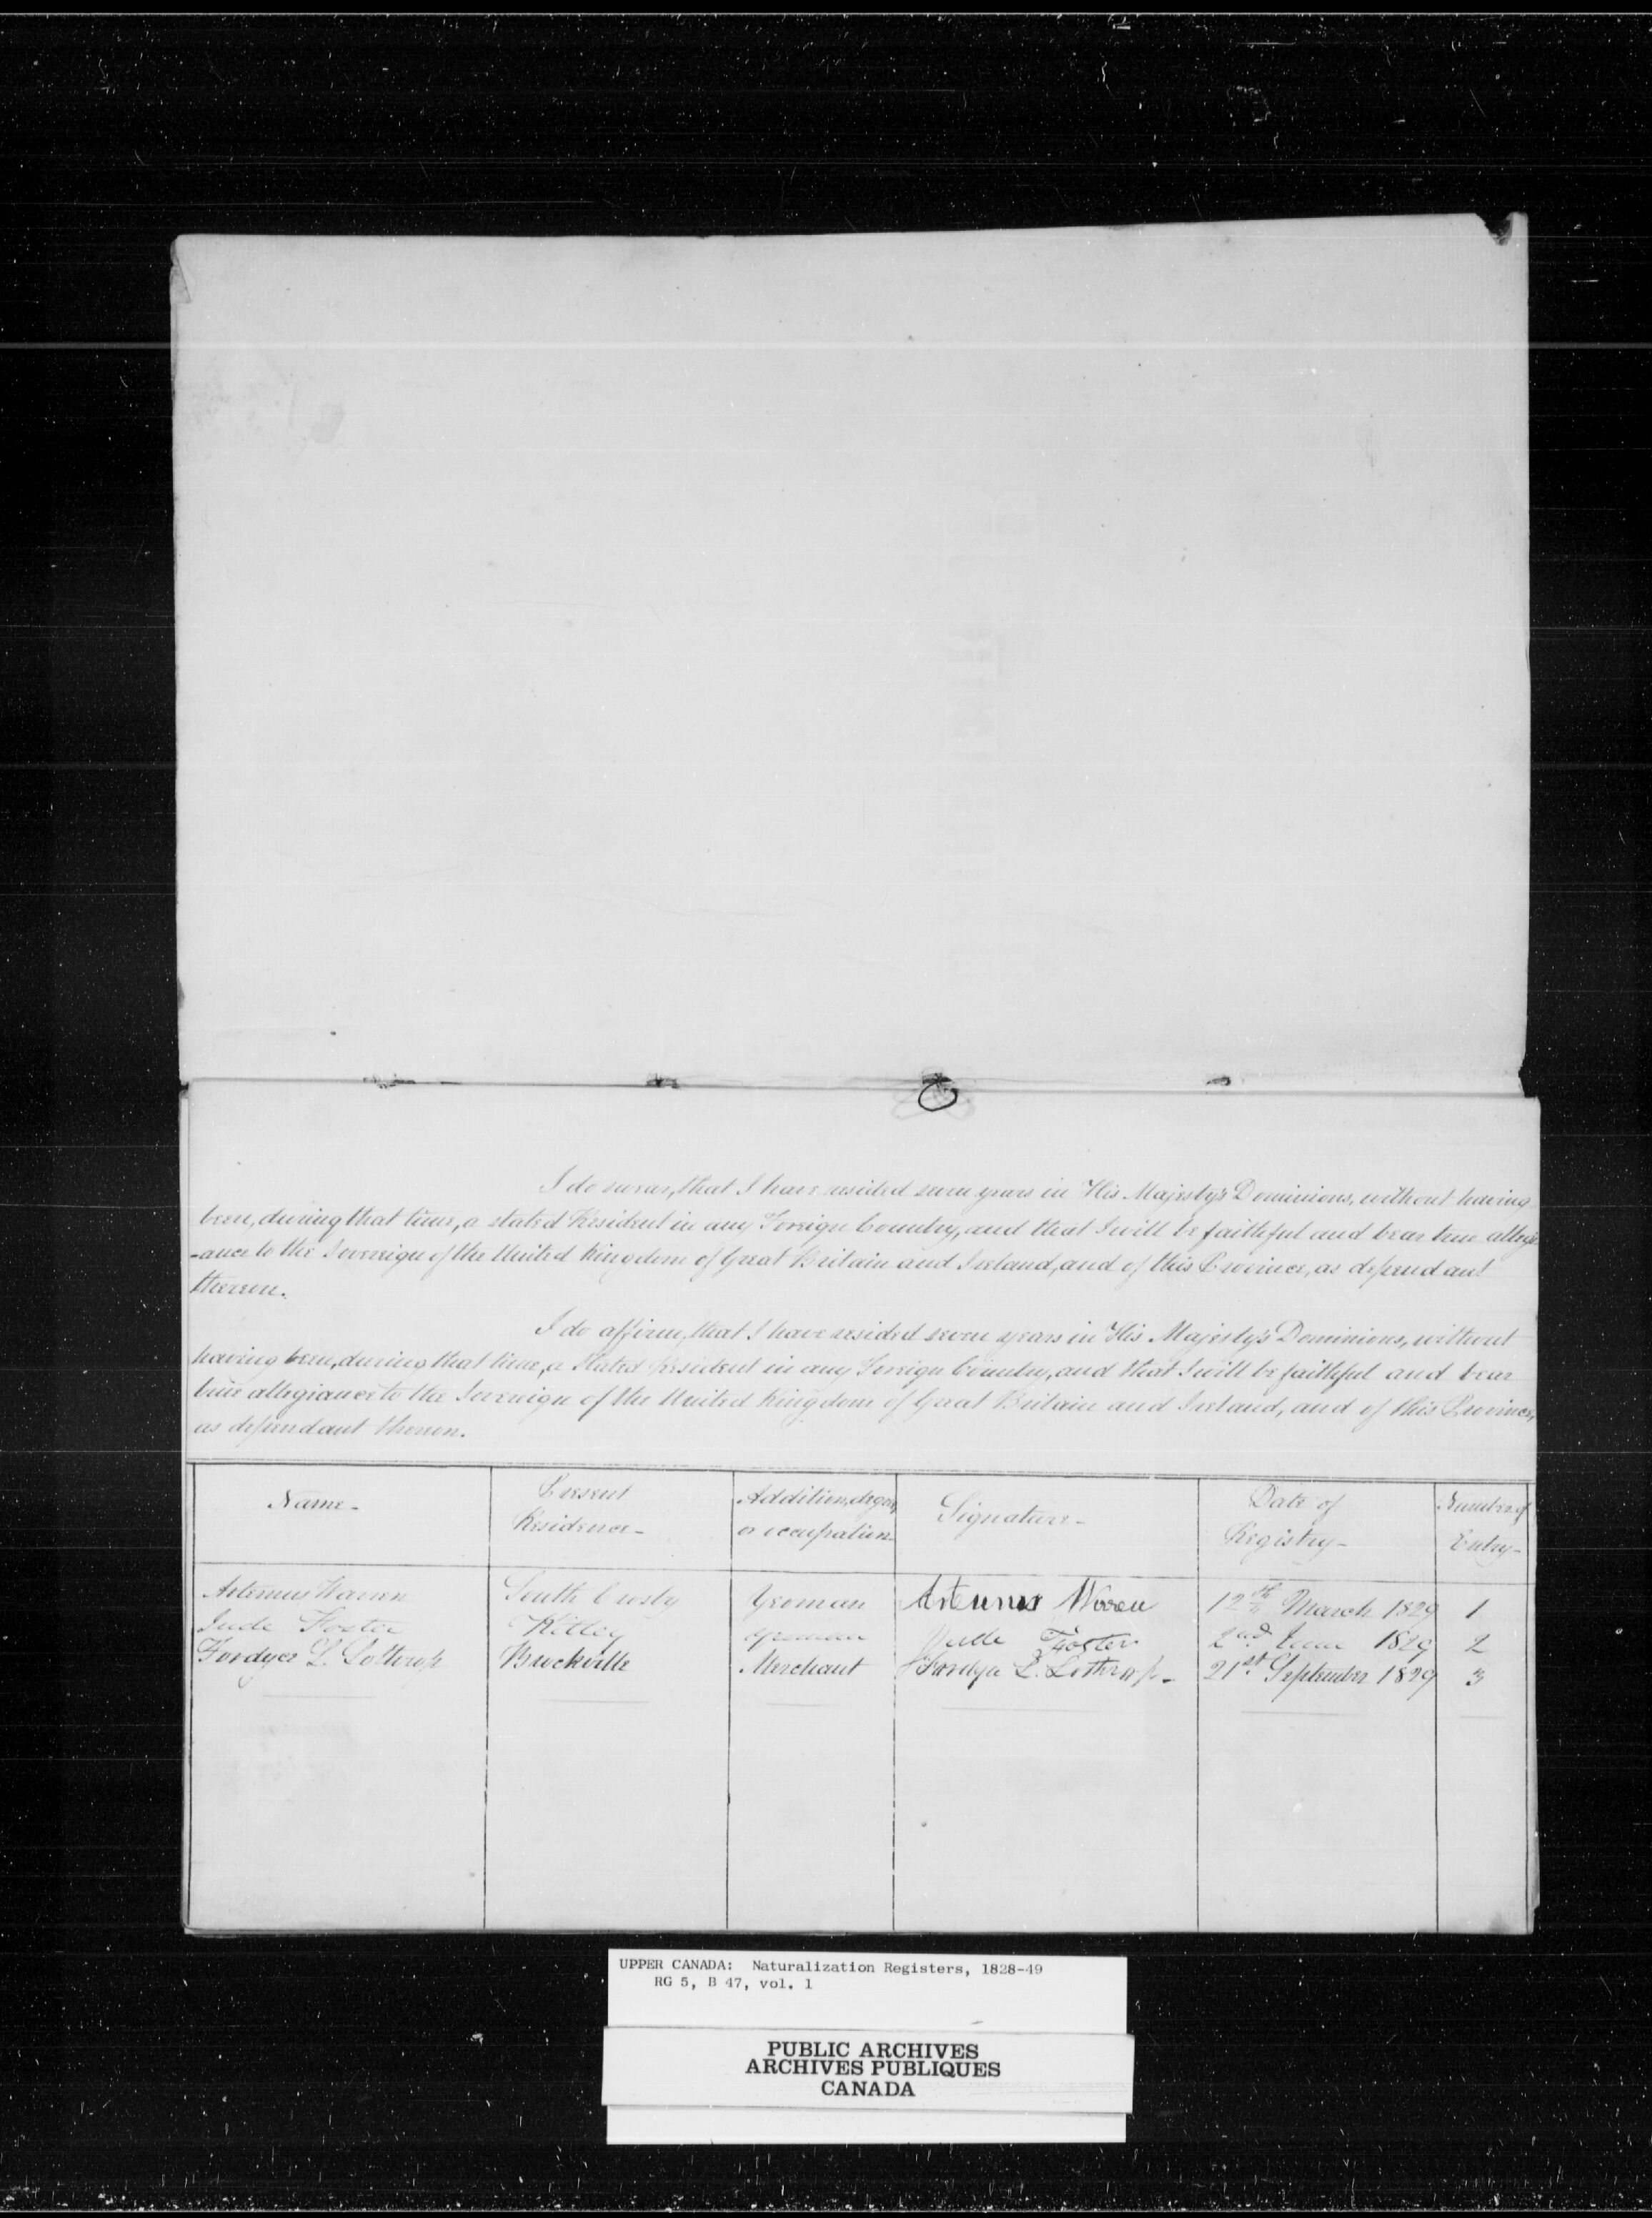 I do swear, that I have resided seven years in His Majesty's Dominions, without having
been, during that time, a stated Resident in any Foreign Country, and that I will be faithful and bear true allegi
-ance to the Sovereign of the United Kingdom of Great Britain and Ireland, and of this Province, as dependant
thereon.
I do affirm, that I have resided seven years in His Majesty's Dominions, without
having been, during that time, a stated Resident in any Foreign Country, and that I will be faithful and bear
true allegiance to the Sovereign of the United Kingdom of Great Britain and Ireland, and of this Province,
as dependant thereon.
Name - Present Residence - Addition, degree, or occupation - Signature - Date of Registry - Number of Entry -
Artemus Warren South Crosby Yeoman Artemus Warren 12th March 1829 1
Jude Foster Kitley Yeoman Jude Foster 2nd June 1829 2
Fordyce L. Lothrop Brockville Merchant Fordyce L. Lothrop - 21st September 1829 3
UPPER CANADA: Naturalization Registers, 1828-49
RG 5, B 47, vol. 1
PUBLIC ARCHIVES
ARCHIVES PUBLIQUES
CANADA